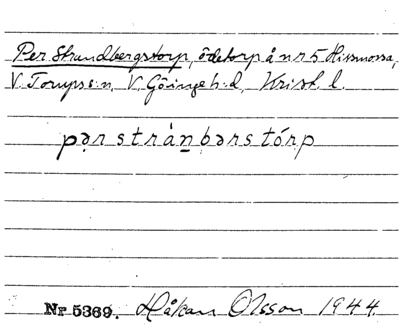 Per Strandbergstorp, ödetorp å nr 5 Hissmossa,
V. Torups s:n, V. Göinge h:d, Krist. l.
pə̣r strán̲bərstórp
Nr 5369. Håkan Olsson 1944.